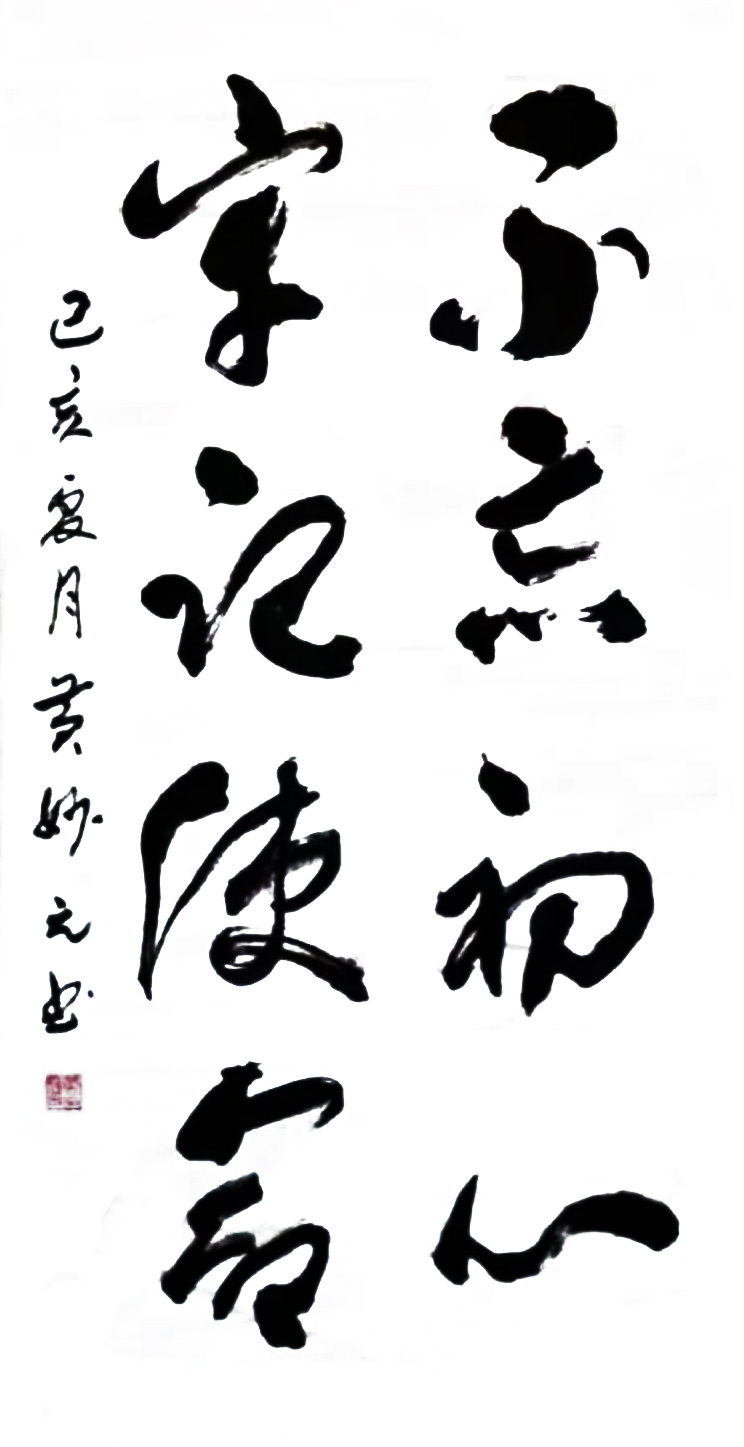 不忘初心
牢记使命
己亥夏月黄妙元书